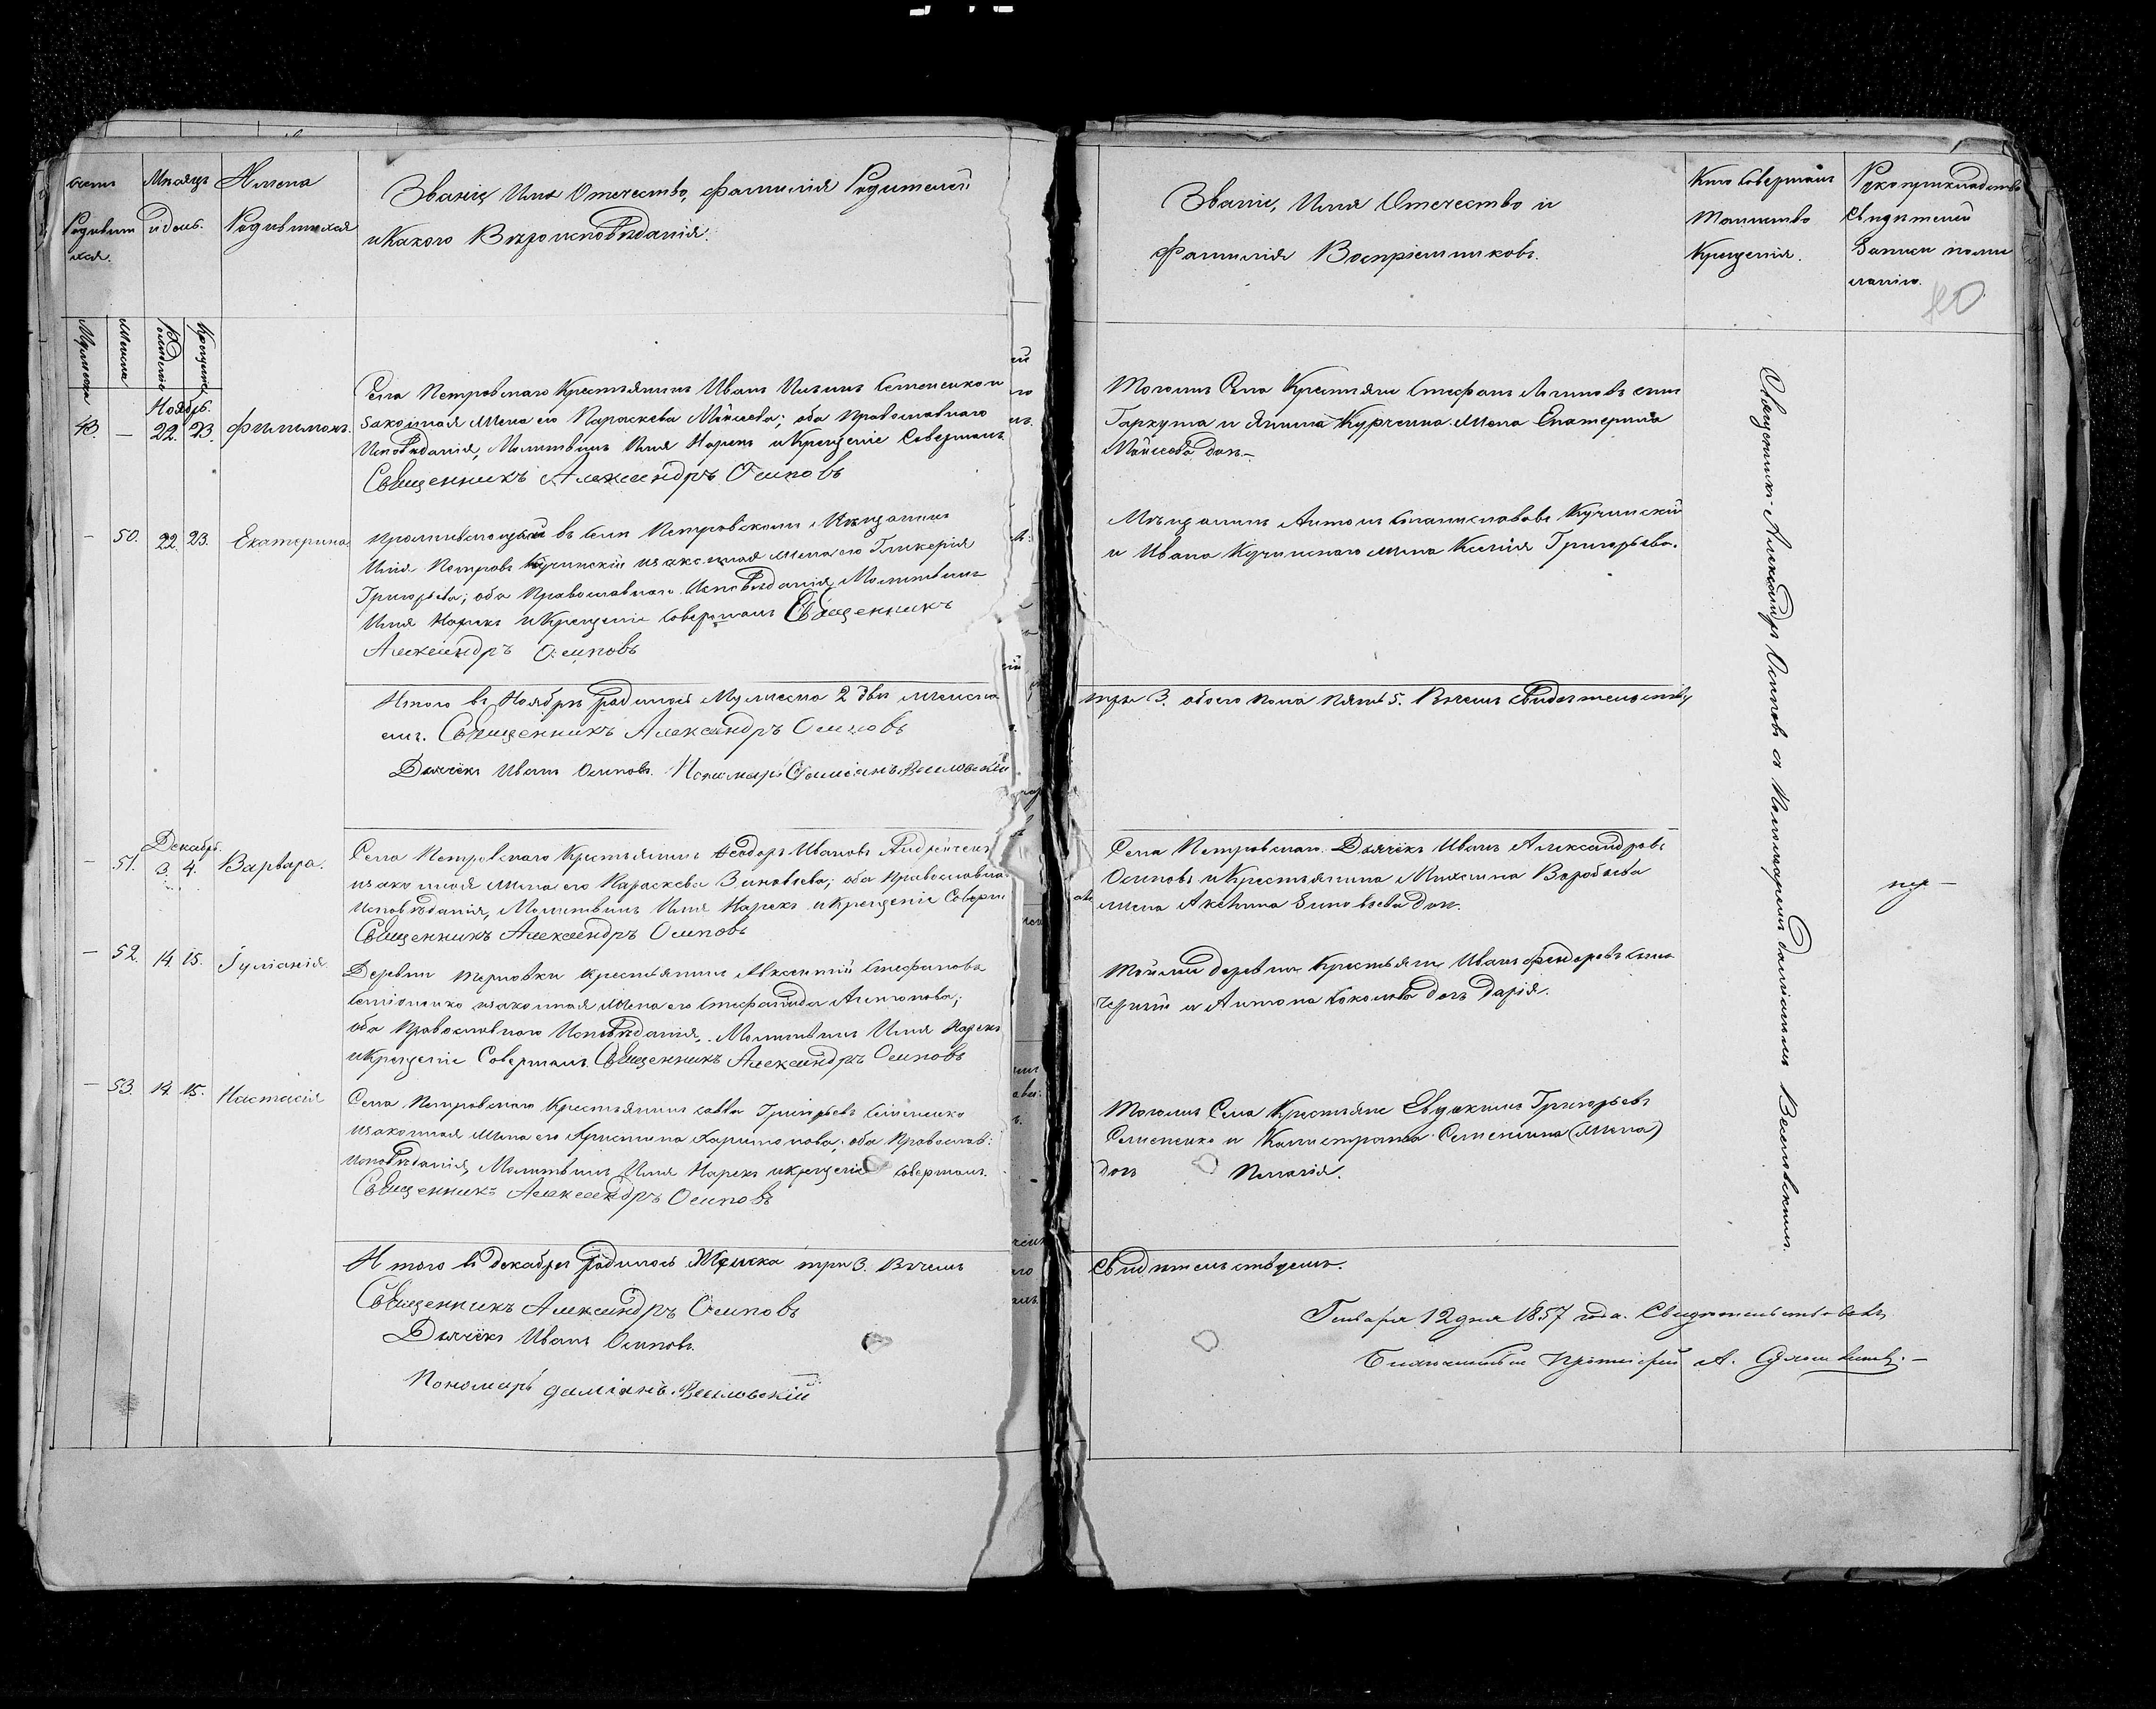 Счетъ Родившихся.
Мѣсяцъ и день.
Имена Родившихся
Званіе, Имя Отечество, Фамилія Родителей
и Какого Вѣроисповѣданія.
Мужеска
Женска
Рожденіе
Крещеніе
Ноябрь.
43. — 22. 23. Филимонъ.
Села Петровскаго Крестьянинъ Иванъ Семененко и
законная жена его Параскева Мойсеева; оба Православнаго
Исповѣданія, Молитвилъ Имя Нарекъ и Крещеніе Совершалъ
Священникъ Александръ Осиповъ
— 50. 22. 23. Екатерина
въ селѣ Петровскомъ Мѣщанинъ
Петровъ Кучинскій и законная жена его Гликерія
Григорьева; оба Православнаго Исповѣданія, Молитвилъ
Имя Нарекъ и Крещеніе Совершалъ Священникъ
Александръ Осиповъ
Итого въ Ноябрѣ родилось Мужеска 2 два женска
Священникъ Александръ Осиповъ
Дьячекъ Иванъ Осиповъ. Пономарь Даміанъ Веселовскій
Декабрь.
— 51. 3. 4. Варвара.
Села Петровскаго Крестьянинъ Ѳеодоръ Ивановъ
и законная жена его Параскева Зиновьева; оба Православна
Исповѣданія, Молитвилъ Имя Нарекъ и Крещеніе Соверш
Священникъ Александръ Осиповъ
— 52. 14. 15. Іуліанія.
Деревни Терновки Крестьянинъ Авксентій Стефановъ
законная жена его Стефанида Антонова;
оба Православнаго Исповѣданія, Молитвилъ Имя Нарекъ
и Крещеніе Совершалъ Священникъ Александръ Осиповъ
— 53. 14. 15. Настасія
Села Петровскаго Крестьянинъ Савва Григорьевъ Семененко
и законная жена его Христина Харитонова; оба Православ:
Исповѣданія, Молитвилъ Имя Нарекъ и Крещеніе Совершалъ.
Священникъ Александръ Осиповъ
Итого въ декабрѣ родилось Женска три 3. Въ чемъ
Священникъ Александръ Осиповъ
Дьячекъ Иванъ Осиповъ.
Пономарь Даміанъ Веселовскій
Званіе, Имя Отечество и
Фамилія Воспріемниковъ.
Кто Совершалъ
Таинство
Крещенія.
Рукоприкладство
Свидѣтелей
Записи по же
ланію.
Тогожъ Села Крестьяне Стефанъ Логиновъ сынъ
Гаркуша и жена Екатерина
Мойсеева дочь —
Мѣщанинъ Антонъ Станиславовъ Кучинскій
и Ивана Кучинскаго жена Ксенія Григорьева.
три 3. обоего пола пять 5. Въ чемъ свидѣтельству
Села Петровскаго Дьячекъ Иванъ Александровъ
Осиповъ и Крестьянина Михаила Воробьева
жена Акелина Зиновьева дочь.
Тойже деревни Крестьяне Иванъ Феодоровъ сынъ
и Антона дочь Дарія.
Тогожъ Села Крестьяне Евдокимъ Григорьевъ
Семененко и Калистрата Семенина (жена)
дочь Пелагія.
свидѣтельствуемъ.
Священникъ Александръ Осиповъ съ Пономаремъ Даміаномъ Веселовскимъ.
Генваря 12 дня 1857 года. Свидѣтельствовалъ
Благочинный Протоіерей А.